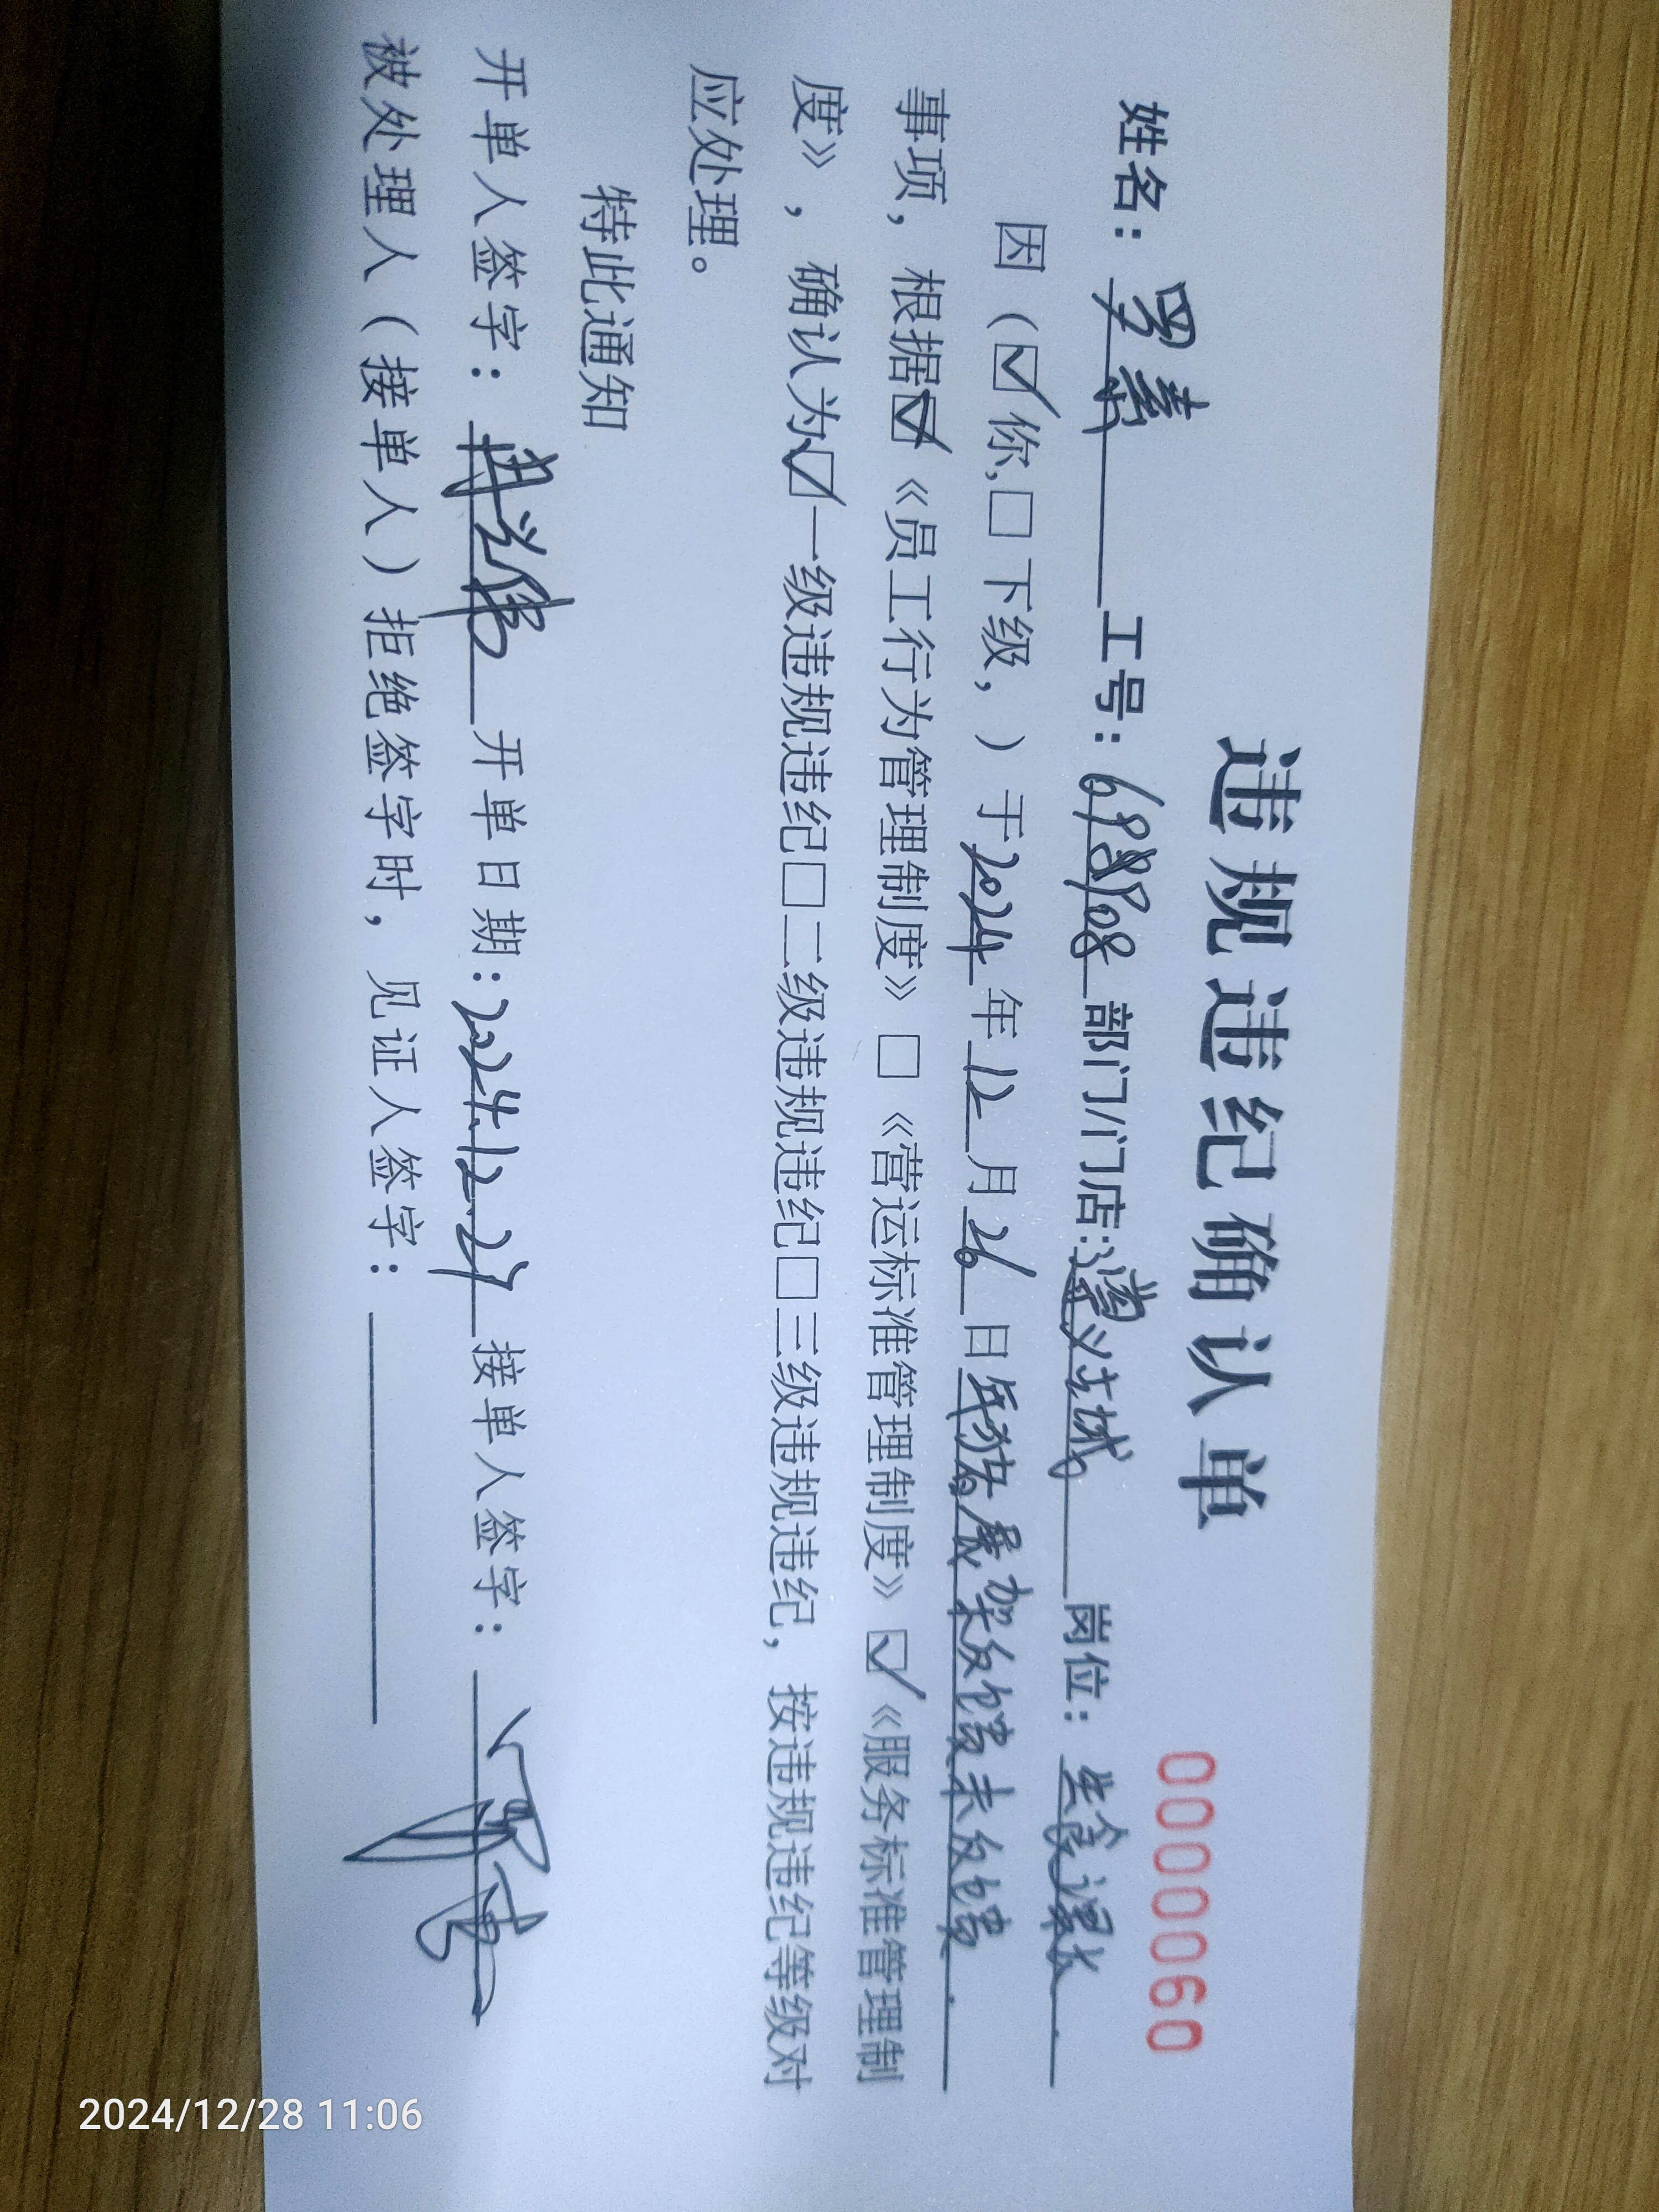 违规违纪确认单
0000060
姓名：罗素 工号：698808 部门/门店：遵义立城 岗位：生食课长
因（☑你,□下级，）于2024年12月26日年猪展架反馈未反馈
事项，根据☑《员工行为管理制度》□《营运标准管理制度》☑《服务标准管理制
度》，确认为☑一级违规违纪□二级违规违纪□三级违规违纪，按违规违纪等级对
应处理。
特此通知
开单人签字： 开单日期：2024.12.27 接单人签字：
被处理人（接单人）拒绝签字时，见证人签字：
2024/12/28 11:06